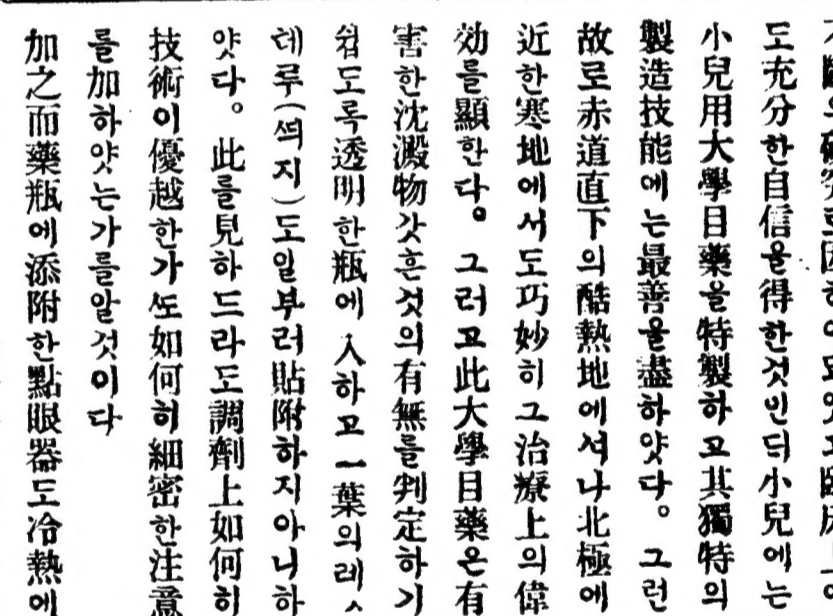 도充分한自信을得한것인듸小兒에는
小兒用大學目藥을特製하고其獨特의
製造技能에는最善을盡하얏다。그런
故로赤道直下의酷熱地에서나北極에
近한寒地에서도巧妙히그治療上의偉
効를顯한다。그러고此大學目藥은有
害한沈澱物갓흔것의有無를判定하기
쉽도록透明한瓶에入하고一葉의레ㅅ
데루(셕지)도일부러貼附하지아니하
얏다。此를見하드라도調劑上如何히
技術이優越한가ᄯᅩ如何히細密한注意
를加하얏는가를알것이다
加之而藥瓶에添附한點眼器도冷熱에